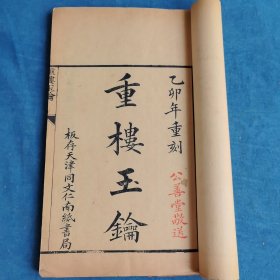 乙卯年重刻
重樓玉鑰
公善堂敬送
板存天津同文仁南紙書局